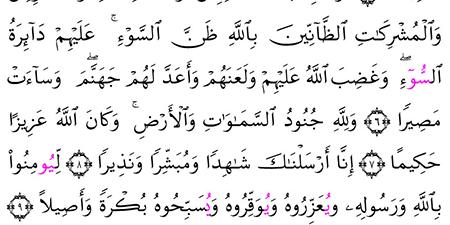 وَٱلْمُشْرِكَٰتِ ٱلظَّآنِّينَ بِٱللَّهِ ظَنَّ ٱلسَّوْءِ ۚ عَلَيْهِمْ دَآئِرَةُ
ٱلسُّوٓءِ ۖ وَغَضِبَ ٱللَّهُ عَلَيْهِمْ وَلَعَنَهُمْ وَأَعَدَّ لَهُمْ جَهَنَّمَ ۖ وَسَآءَتْ
مَصِيرًا ﴿٦﴾ وَلِلَّهِ جُنُودُ ٱلسَّمَٰوَٰتِ وَٱلْأَرْضِ ۚ وَكَانَ ٱللَّهُ عَزِيزًا
حَكِيمًا ﴿٧﴾ إِنَّآ أَرْسَلْنَٰكَ شَٰهِدًا وَمُبَشِّرًا وَنَذِيرًا ﴿٨﴾ لِّيُومِنُوا۟
بِٱللَّهِ وَرَسُولِهِۦ وَيُعَزِّرُوهُ وَيُوَقِّرُوهُ وَيُسَبِّحُوهُ بُكْرَةً وَأَصِيلًا ﴿٩﴾